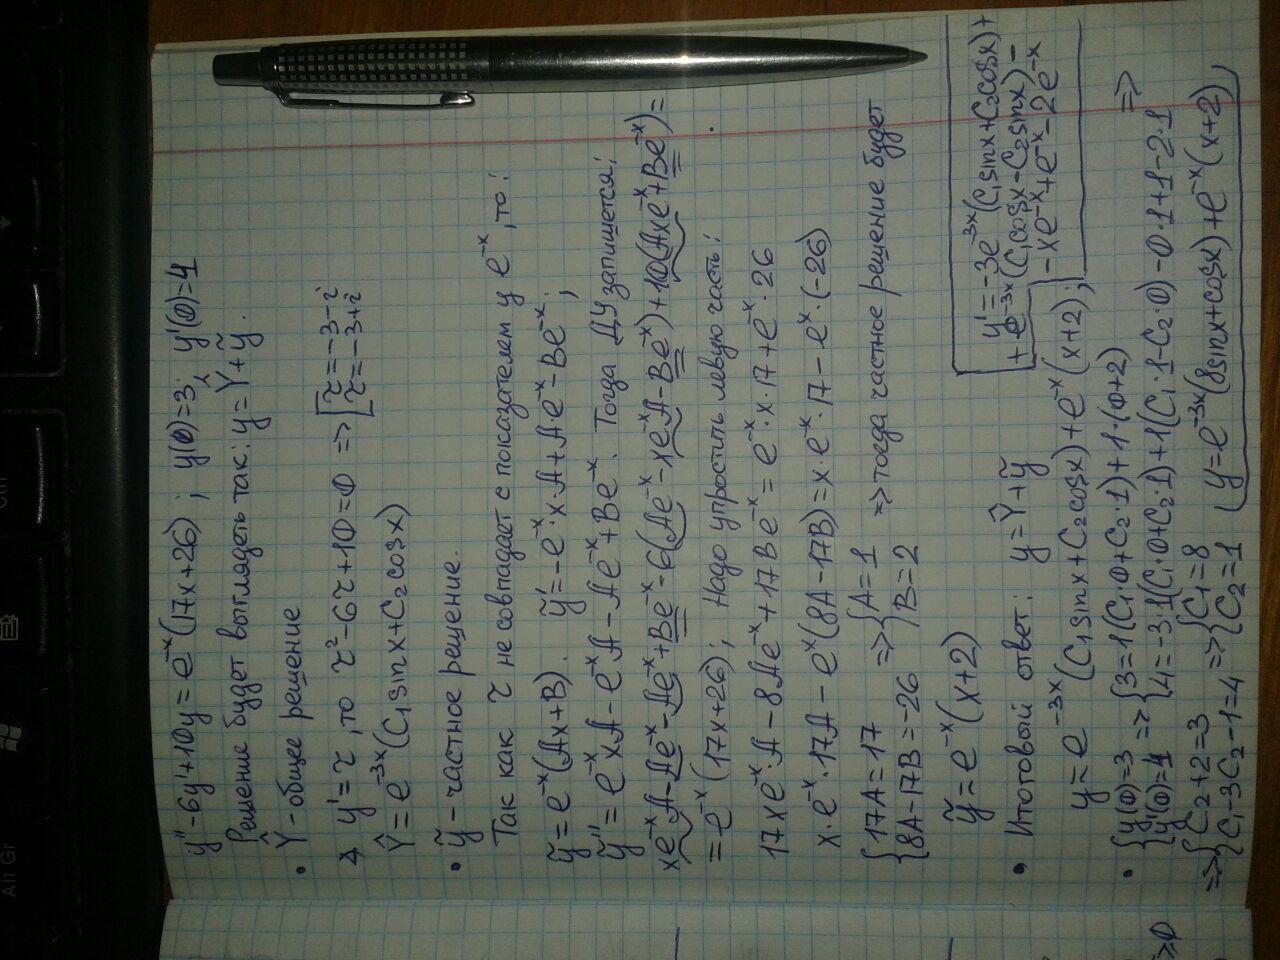 y''-6y'+10y=e^-x(17x+26) ; y(0)=3; y'(0)=4
Решение будет выглядеть так: y=Ŷ+ỹ.
• Ŷ - общее решение
y'=r, то r²-6r+10=0 => [r=-3-i
r=-3+i
Ŷ=e^-3x(C₁sinx+C₂cosx)
• ỹ - частное решение.
Так как r не совпадает с показателем у e^-x, то:
ỹ=e^-x(Ax+B). ỹ'=-e^-x·x·A+Ae^-x-Be^-x;
ỹ''=e^-x xA-e^-x A-Ae^-x+Be^-x. Тогда ДУ запишется:
xe^-x A-Ae^-x-Ae^-x+Be^-x-6(Ae^-x-xe^-x A-Be^-x)+10(Axe^-x+Be^-x)=
=e^-x(17x+26); Надо упростить левую часть:
17xe^-x A-8Ae^-x+17Be^-x=e^-x·x·17+e^-x·26
x·e^-x·17A-e^-x(8A-17B)=x·e^-x·17-e^-x·(-26)
{17A=17
8A-17B=-26 => {A=1
B=2 => тогда частное решение будет
ỹ=e^-x(x+2)
• Итоговый ответ: y=Ŷ+ỹ
y=e^-3x(C₁sinx+C₂cosx)+e^-x(x+2);
y'=-3e^-3x(C₁sinx+C₂cosx)+
+e^-3x(C₁cosx-C₂sinx)-
-xe^-x+e^-x-2e^-x
• {y(0)=3
y'(0)=4 => {3=1(C₁·0+C₂·1)+1·(0+2)
4=-3·1(C₁·0+C₂·1)+1(C₁·1-C₂·0)-0·1+1-2·1 =>
=> {C₂+2=3
C₁-3C₂-1=4 => {C₁=8
C₂=1
y=e^-3x(8sinx+cosx)+e^-x(x+2)
Alt Gr
Ctrl